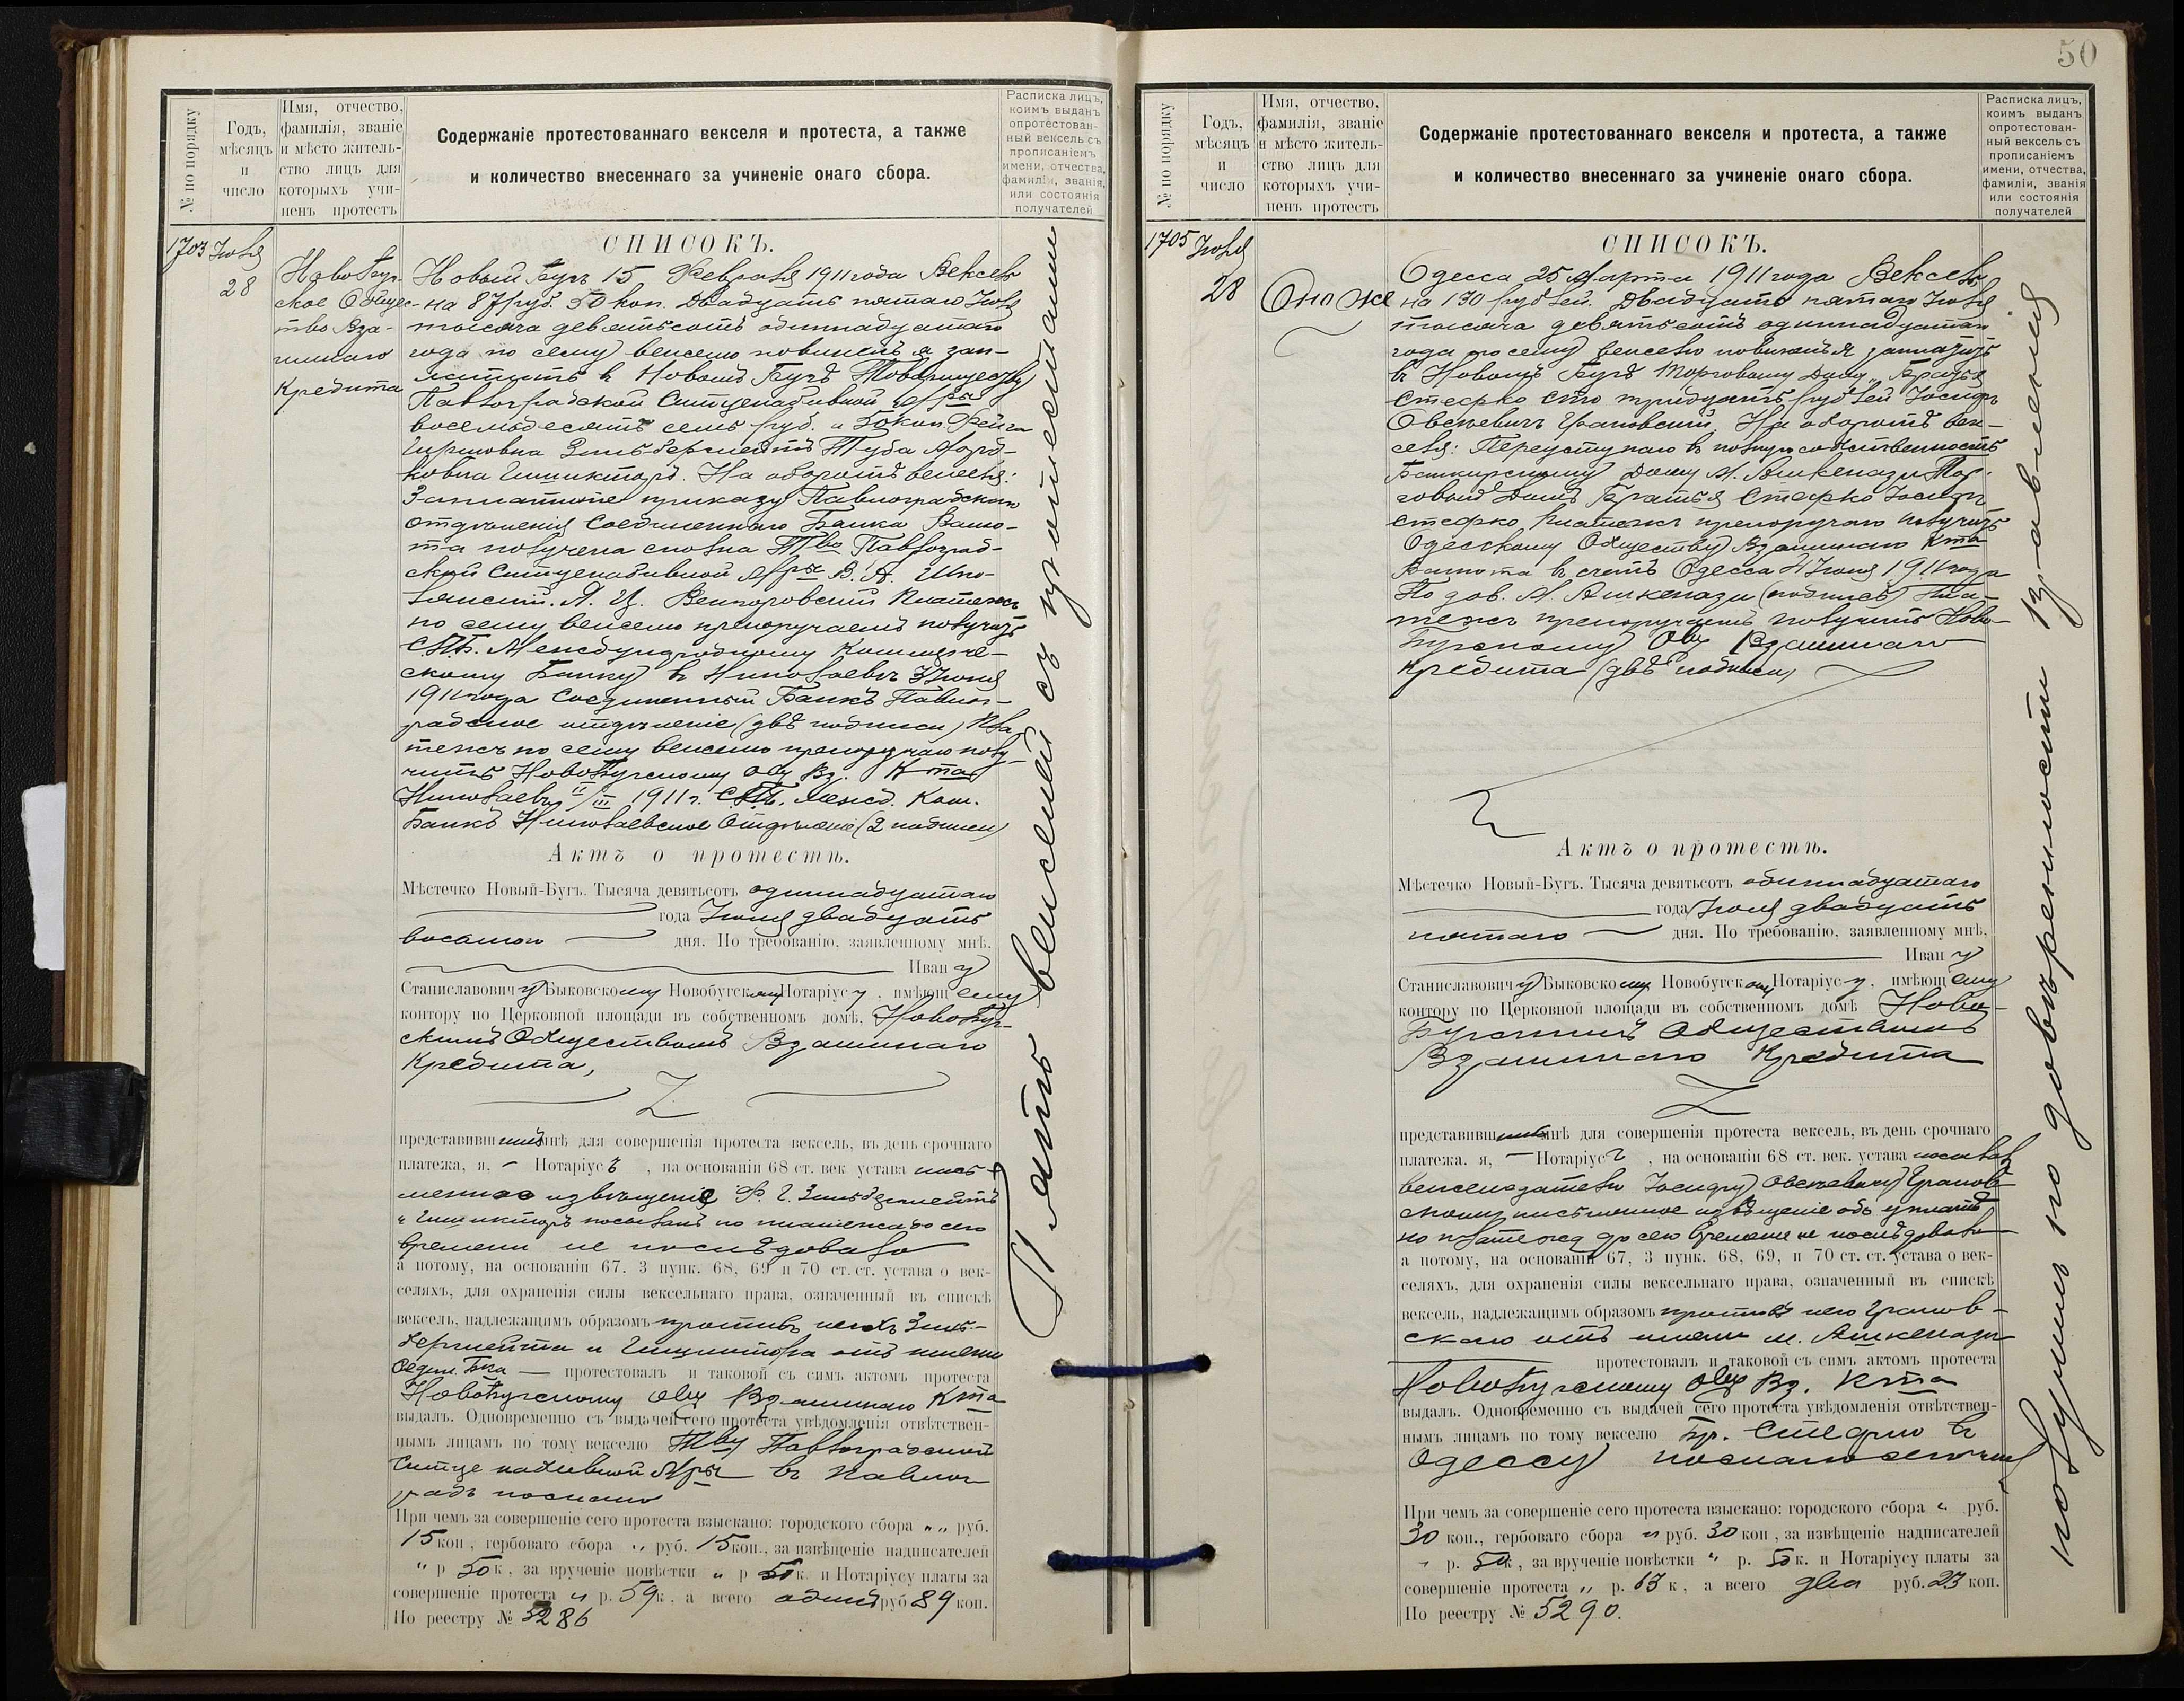 № по порядку
Годъ, мѣсяцъ и число
Имя, отчество, фамилія, званіе и мѣсто жительство лицъ для которыхъ учиненъ протестъ
Содержаніе протестованнаго векселя и протеста, а также
и количество внесеннаго за учиненіе онаго сбора.
Расписка лицъ, коимъ выданъ опротестованный вексель съ прописаніемъ имени, отчества, фамиліи, званія, или состоянія получателей
1703 Іюля
28
Ново Буг-
ское Общес-
тво Вза-
имнаго
Кредита
СПИСОКЪ.
Новый Бугъ 15 Февраля 1911 года Вексель
на 87 руб. 50 коп. Двадцать пятаго Іюля
тысяча девятьсотъ одиннадцатаго
года по сему векселю повиненъ я зап-
латить в Новомъ Бугѣ Товариществу
Павлоградской Ситценабивной М-ры
восемьдесятъ семь руб. и 50 коп. Фейга
На оборотѣ векселя:
Заплатите приказу Павлоградскаго
отдѣленія Соединеннаго Банка Валю-
та получена сполна Тво Павлоград-
ской Ситценабивной М-ры В. А.
Платежъ
по сему векселю препоручаемъ получить
С.П.Б. Международному Коммерче-
скому Банку в Николаевѣ 3 Іюня
1911 года Соединенный Банкъ Павлог-
радское отдѣленіе (двѣ подписи) Пла-
тежъ по сему векселю препоручаю полу-
чить НовоБугскому Общ Вз. К-та
Николаевъ 1911 г. С.П.Б. Межд. Ком.
Банкъ Николаевское Отдѣленіе (2 подписи)
Актъ о протестѣ.
Мѣстечко Новый-Бугъ. Тысяча девятьсотъ одиннадцатаго
года Іюля двадцать
восьмого дня. По требованію, заявленному мнѣ,
Ивану
Станиславовичу Быковскому Новобугскому Нотаріусу, имѣющему
контору по Церковной площади въ собственномъ домѣ, НовоБуг-
скимъ Обществомъ Взаимнаго
Кредита,
представившимъ мнѣ для совершенія протеста вексель, въ день срочнаго
платежа, я, - Нотаріусъ, на основаніи 68 ст. век устава пись-
менное извѣщеніе Ф. Г.
посылалъ но платежа до сего
времени не послѣдовало
а потому, на основаніи 67. 3 пунк. 68, 69 и 70 ст. ст. устава о век-
селяхъ, для охраненія силы вексельнаго права, означенный въ спискѣ
вексель, надлежащимъ образомъ противъ нихъ
отъ имени
Соедин. Б-ка — протестовалъ и таковой съ симъ актомъ протеста
НовоБугскому Общ Взаимнаго К-та
выдалъ. Одновременно съ выдачей сего протеста увѣдомленія отвѣтствен-
нымъ лицамъ по тому векселю Т-ву Павлоградской
Ситценабивной М-ры въ Павлог-
радъ послано
При чемъ за совершеніе сего протеста взыскано: городского сбора „ „ руб.
15 коп, гербоваго сбора „ руб. 15 коп., за извѣщеніе надписателей
„ р 50 к, за врученіе повѣстки „ р 50 к. и Нотаріусу платы за
совершеніе протеста „ р. 59 к, а всего одинъ руб 89 коп.
По реестру № 5286
Пять векселей съ протестами
50
№ по порядку
Годъ, мѣсяцъ и число
Имя, отчество, фамилія, званіе и мѣсто жительство лицъ для которыхъ учиненъ протестъ
Содержаніе протестованнаго векселя и протеста, а также
и количество внесеннаго за учиненіе онаго сбора.
Расписка лицъ, коимъ выданъ опротестованный вексель съ прописаніемъ имени, отчества, фамиліи, званія или состоянія получателей
1705 Іюля
28
Оно же
СПИСОКЪ.
Одесса 25 Марта 1911 года Вексель
на 130 рублей. Двадцать пятаго Іюля
тысяча девятьсотъ одиннадцатаго
года по сему векселю повиненъ я заплатить
в Новомъ Бугѣ Торговому Дому „Братья
Стефко сто тридцать рублей Іосифъ
Овсѣевичъ Грановскій. На оборотѣ век-
селя: Переуступаю в полную собственность
Банкирскому Дому М. Ашкенази Тор-
говый Домъ Братья Стефко Іосифъ
Стефко, Платежъ препоручаю получить
Одесскому Обществу Взаимнаго К-та
Валюта въ счетъ Одесса 4 Іюня 1911 года
По дов. М. Ашкенази (подпись) Пла-
тежъ препоручаемъ получить Ново-
Бугскому Общ Взаимнаго
Кредита (двѣ подписи)
Актъ о протестѣ.
Мѣстечко Новый-Бугъ. Тысяча девятьсотъ одиннадцатаго
года Іюля двадцать
пятаго дня. По требованію, заявленному мнѣ,
Ивану
Станиславовичу Быковскому Новобугскому Нотаріусу, имѣющему
контору по Церковной площади въ собственномъ домѣ Ново-
Бугскимъ Обществомъ
Взаимнаго Кредита
представившимъ мнѣ для совершенія протеста вексель, въ день срочнаго
платежа. я, — Нотаріусъ, на основаніи 68 ст. век. устава посылалъ
векселедателю Іосифу Овсѣевичу Гранов-
скому письменное извѣщеніе объ уплатѣ
но платежа до сего времени не послѣдовало
а потому, на основаніи 67, 3 пунк. 68, 69, и 70 ст. ст. устава о век-
селяхъ, для охраненія силы вексельнаго права, означенный въ спискѣ
вексель, надлежащимъ образомъ противъ него Гранов-
скаго отъ имени М. Ашкенази
протестовалъ и таковой съ симъ актомъ протеста
НовоБугскому Общ Вз. К-та
выдалъ. Одновременно съ выдачей сего протеста увѣдомленія отвѣтствен-
нымъ лицамъ по тому векселю Бр. Стефко въ
Одессу послано
При чемъ за совершеніе сего протеста взыскано: городского сбора „ руб.
30 коп., гербоваго сбора „ руб. 30 коп, за извѣщеніе надписателей
„ р. 50 к, за врученіе повѣстки „ р. 50 к. и Нотаріусу платы за
совершеніе протеста „ р. 63 к, а всего два руб. 23 коп.
По реестру № 5290.
получилъ по довѣренности